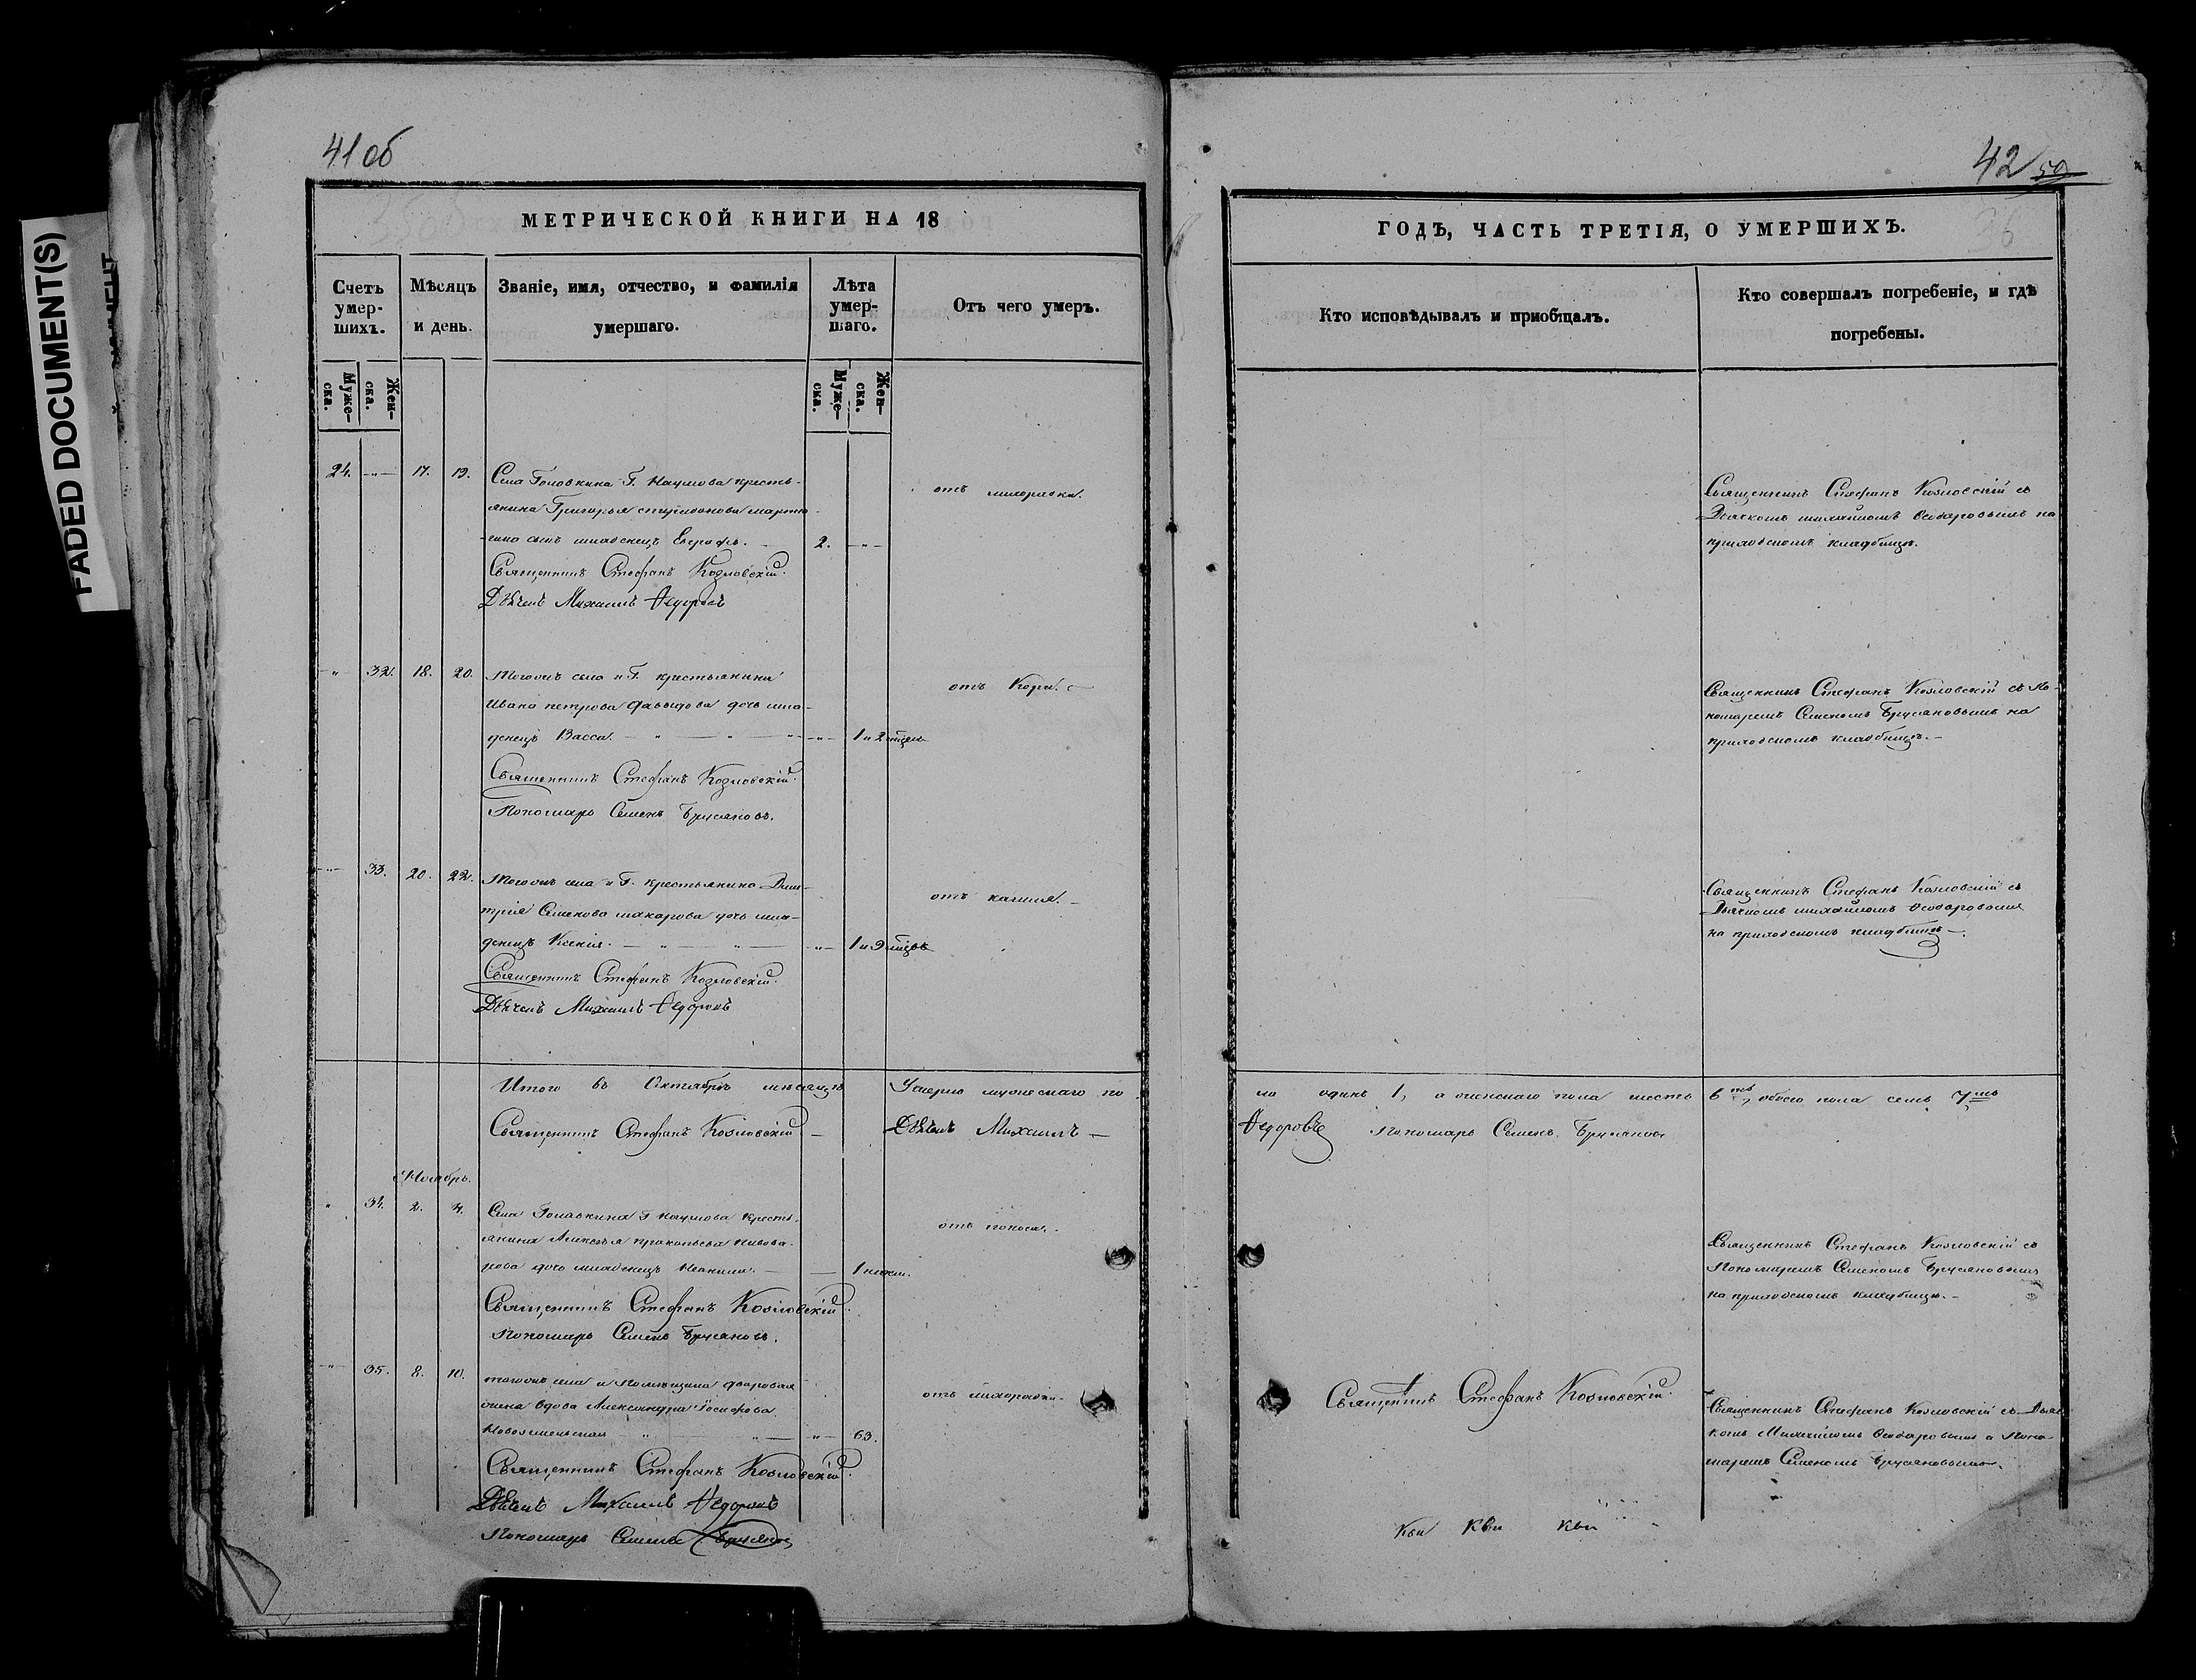 FADED DOCUMENT(S)
41 об
МЕТРИЧЕСКОЙ КНИГИ НА 18
Счетъ умер-шихъ.
Мѣсяцъ и день.
Званіе, имя, отчество, и фамилія умершаго.
Лѣта умер-шаго.
Отъ чего умеръ.
Муже-ска.
Жен-ска.
Муже-ска.
Жен-ска.
24. -"- 17. 19. Села Головкина Г. Наумова кресть-
янина Григорья Спиридонова
сынъ младенецъ 2. -"-
отъ лихорадки.
Священникъ Стефанъ Козловскій.
Дьячекъ Михаилъ Федоровъ
" 32. 18. 20. Тогожъ села и Г. крестьянина
Ивана Петрова Давыдова дочь мла-
денецъ Васса. - " - " - " -"- 1 и 2 мѣсяц
отъ Кори.
Священникъ Стефанъ Козловскій.
Пономарь Семенъ Брусяновъ.
-"- 33. 20. 22. Тогожъ села и Г. крестьянина Дми-
трія Семенова Макарова дочь мла-
денецъ Ксенія. - " - " - -"- 1 и 9 мѣсяц
отъ кашля. -
Священникъ Стефанъ Козловскій.
Дьячекъ Михаилъ Федоровъ
Итого въ Октябрѣ мѣсяцѣ Умерло мужескаго по
Священникъ Стефанъ Козловскій - Дьячекъ Михаилъ -
Ноябрь.
" 34. 2. 4. Села Головкина Г Наумова кресть-
янина Алексѣя Прокопьева Пивова-
рова дочь младенецъ - 1 недѣли.
отъ поноса.
Священникъ Стефанъ Козловскій.
Пономарь Семенъ Брусяновъ.
-"- 35. 8. 10. тогожъ села и Помѣщика дворовая
жена вдова Александра Іосифова
" " -"- 63.
отъ лихорадки-
Священникъ Стефанъ Козловскій.
Дьячекъ Михаилъ Федоровъ
Пономарь Семенъ Брусяновъ
42 50
36
ГОДЪ, ЧАСТЬ ТРЕТІЯ, О УМЕРШИХЪ.
Кто исповѣдывалъ и пріобщалъ.
Кто совершалъ погребеніе, и гдѣ погребены.
Священникъ Стефанъ Козловскій съ
Дьячкомъ Михаиломъ Ѳеодоровымъ на
приходскомъ кладбищѣ.
Священникъ Стефанъ Козловскій съ По-
номаремъ Семеномъ Брусяновымъ на
приходскомъ кладбищѣ.-
Священникъ Стефанъ Козловскій съ
Дьячкомъ Михаиломъ Ѳеодоровымъ
на приходскомъ кладбищѣ-.
ла одинъ 1, а женскаго пола шесть 6ть, обоего пола семь 7мь
Федоровъ Пономарь Семенъ Брусяновъ
Священникъ Стефанъ Козловскій съ
Пономаремъ Семеномъ Брусяновымъ
на приходскомъ кладбищѣ.-
Священникъ Стефанъ Козловскій.
Священникъ Стефанъ Козловскій съ Дьяч-
комъ Михаиломъ Ѳеодоровымъ и Поно-
маремъ Семеномъ Брусяновымъ.